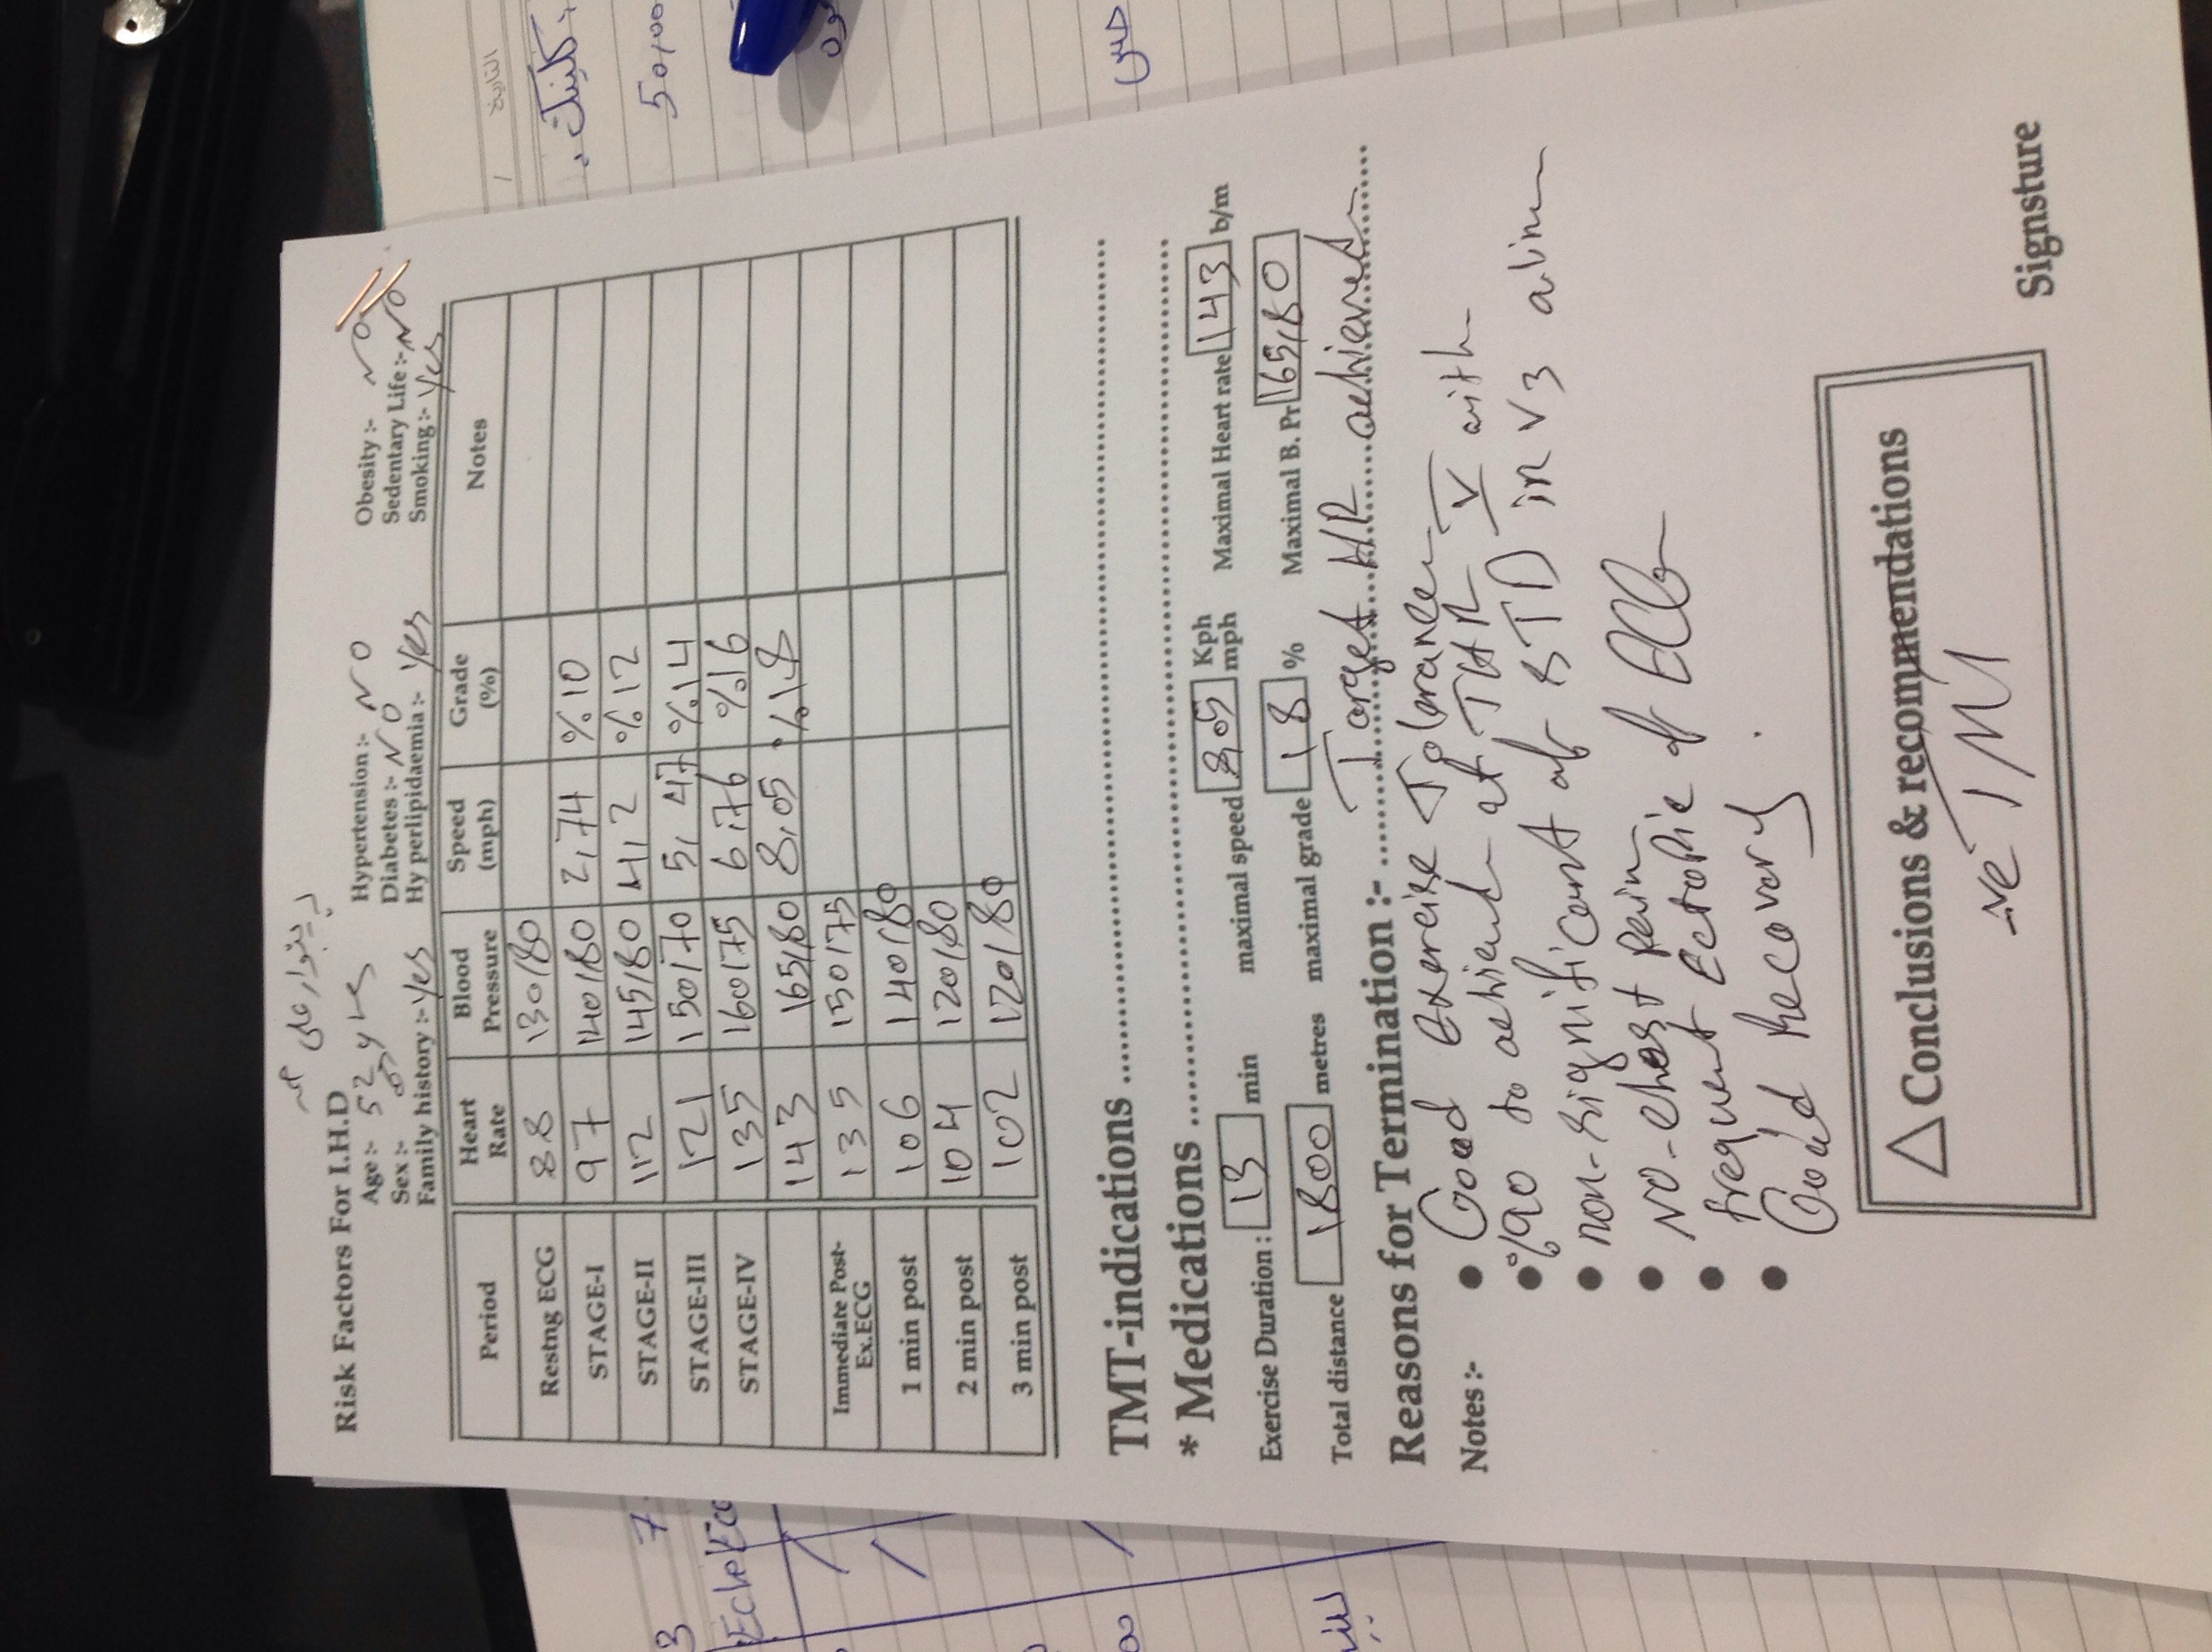 Risk Factors For I.H.D
Age:- 52 y Hypertension:- NO Obesity:- NO
Sex:- ♂ Diabetes:- NO Sedentary Life:- NO
Family history:- Yes Hy perlipidaemia:- Yes Smoking:- Yes
Period Heart Rate Blood Pressure Speed (mph) Grade (%) Notes
Restng ECG 88 130/80
STAGE-I 97 140/80 2,74 %10
STAGE-II 112 145/80 4,2 %12
STAGE-III 121 150/70 5,47 %14
STAGE-IV 135 160/75 6,76 %16
143 165/80 8,05 %18
Immediate Post-Ex.ECG 135 150/75
1 min post 106 140/80
2 min post 104 120/80
3 min post 102 120/80
TMT-indications
* Medications
Exercise Duration: 13 min maximal speed 8,05 Kph mph Maximal Heart rate 143 b/m
Total distance 1800 metres maximal grade 18 % Maximal B. Pr 165/80
Reasons for Termination :- Target HR achieved
Notes:-
• Good exercise Tolerance
• %90 achieved at THR V with
• non-significant of STD in V3
• No-chest pain
• frequent Ectopic of ECG
• Good Recovery
△ Conclusions & recommendations
-ve TMT
Signsture
التاريخ
50,00
3 7